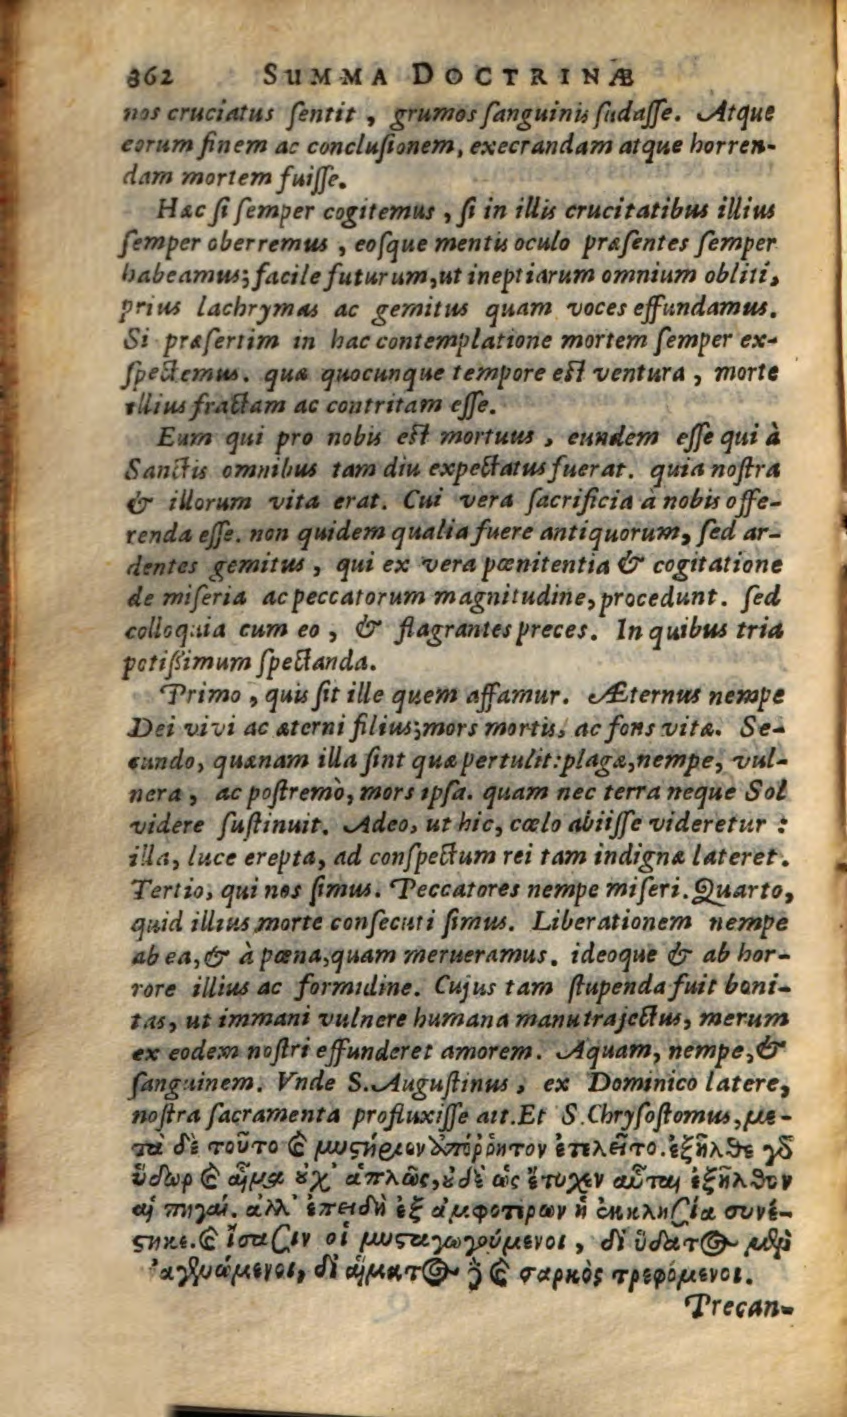 362 SUMMA DOCTRINÆ
nos cruciatus ſentit, grumos ſanguinis ſudaſſe. Atque
eorum finem ac concluſionem, execrandam atque horren-
dam mortem fuiſſe.
Hæc ſi ſemper cogitemus, ſi in illis crucitatibus illius
ſemper oberremus, eoſque mentis oculo præſentes ſemper
habeamus; facile futurum, ut ineptiarum omnium obliti,
prius lachrymas ac gemitus quam voces effundamus.
Si præſertim in hac contemplatione mortem ſemper ex-
ſpectemus. quæ quocunque tempore eſt ventura, morte
illius fractam ac contritam eſſe.
Eum qui pro nobis eſt mortuus, eundem eſſe qui à
Sanctis omnibus tam diu expectatus fuerat. quia noſtra
& illorum vita erat. Cui vera ſacrificia à nobis offe-
renda eſſe. non quidem qualia fuere antiquorum, ſed ar-
dentes gemitus, qui ex vera pœnitentia & cogitatione
de miſeria ac peccatorum magnitudine, procedunt. ſed
colloquia cum eo, & flagrantes preces. In quibus tria
potißimum ſpectanda.
Primo, quis ſit ille quem affamur. Æternus nempe
Dei vivi ac æterni filius; mors mortis, ac fons vitæ. Se-
cundo, quænam illa ſint quæ pertulit: plagæ, nempe, vul-
nera, ac poſtremò, mors ipſa. quam nec terra neque Sol
videre ſuſtinuit. Adeo, ut hic, cœlo abiiſſe videretur:
illa, luce erepta, ad conſpectum rei tam indignæ lateret.
Tertio, qui nos ſimus. Peccatores nempe miſeri. Quarto,
quid illius morte conſecuti ſimus. Liberationem nempe
ab ea, & à pœna, quam merueramus. ideoque & ab hor-
rore illius ac formidine. Cujus tam ſtupenda fuit boni-
tas, ut immani vulnere humana manu trajectus, merum
ex eodem noſtri effunderet amorem. Aquam, nempe, &
ſanguinem. Vnde S. Auguſtinus, ex Dominico latere,
noſtra ſacramenta profluxiſſe ait. Et S. Chryſoſtomus, με-
τὰ δὲ τοῦτο καὶ μυστήριον ἀπόῤῥητον ἐτελεῖτο. ἐξῆλθε γὸ
ὕδωρ καὶ αἷμα οὐχ' ἁπλῶς, οὐδὲ ὡς ἔτυχεν αὗται ἐξῆλθον
αἱ πηγαί. ἀλλ' ἐπειδὴ ἐξ ἀμφοτέρων ἡ ἐκκλησία συνέ-
στηκε. καὶ ἴσασιν οἱ μυσταγωγούμενοι, δι ὕδατος μὲν
ἀναγεννώμενοι, δι αἵματος δὲ καὶ σαρκὸς τρεφόμενοι.
Precan-